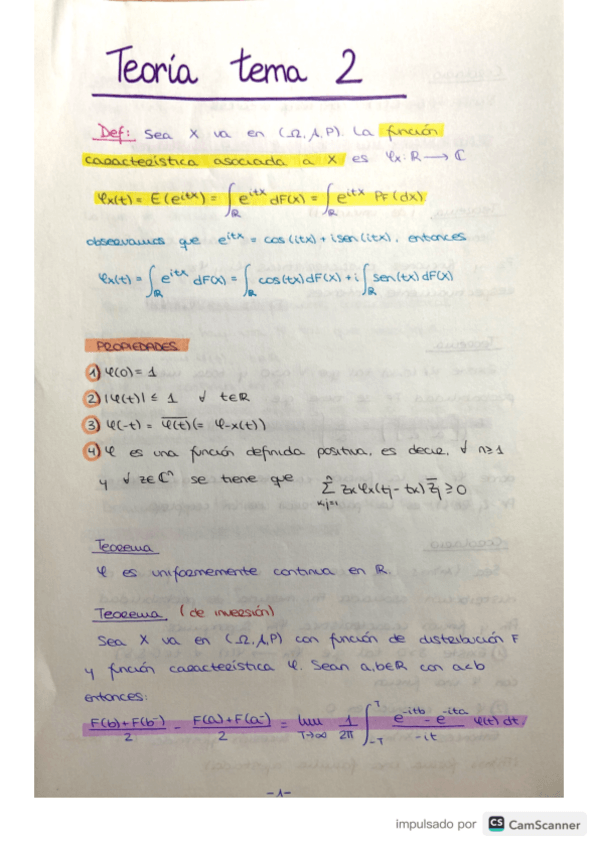 Teoría tema 2
Def: Sea X va en (Ω, A, P). La función
característica asociada a X es φx: R → ℂ
φx(t) = E(e^{itx}) = ∫_R e^{itx} dF(x) = ∫_R e^{itx} PF(dx)
observamos que e^{itx} = cos(itx) + i sen(itx), entonces
φx(t) = ∫_R e^{itx} dF(x) = ∫_R cos(tx) dF(x) + i ∫_R sen(tx) dF(x)
PROPIEDADES
1) φ(0) = 1
2) |φ(t)| ≤ 1 ∀ t∈R
3) φ(-t) = \overline{φ(t)} (= φ-x(t))
4) φ es una función definida positiva, es decir, ∀ n≥1
y ∀ z∈ℂ^n se tiene que ∑_{k,j=1}^{n} zk φx(tj - tk) \overline{zj} ≥ 0
Teorema
φ es uniformemente continua en R.
Teorema (de inversión)
Sea X va en (Ω, A, P) con función de distribución F
y función característica φ. Sean a,b∈R con a<b
entonces:
\frac{F(b)+F(b^-)}{2} - \frac{F(a)+F(a^-)}{2} = lim_{T→∞} \frac{1}{2π} ∫_{-T}^{T} \frac{e^{-itb} - e^{-ita}}{-it} φ(t) dt.
-1-
impulsado por CS CamScanner